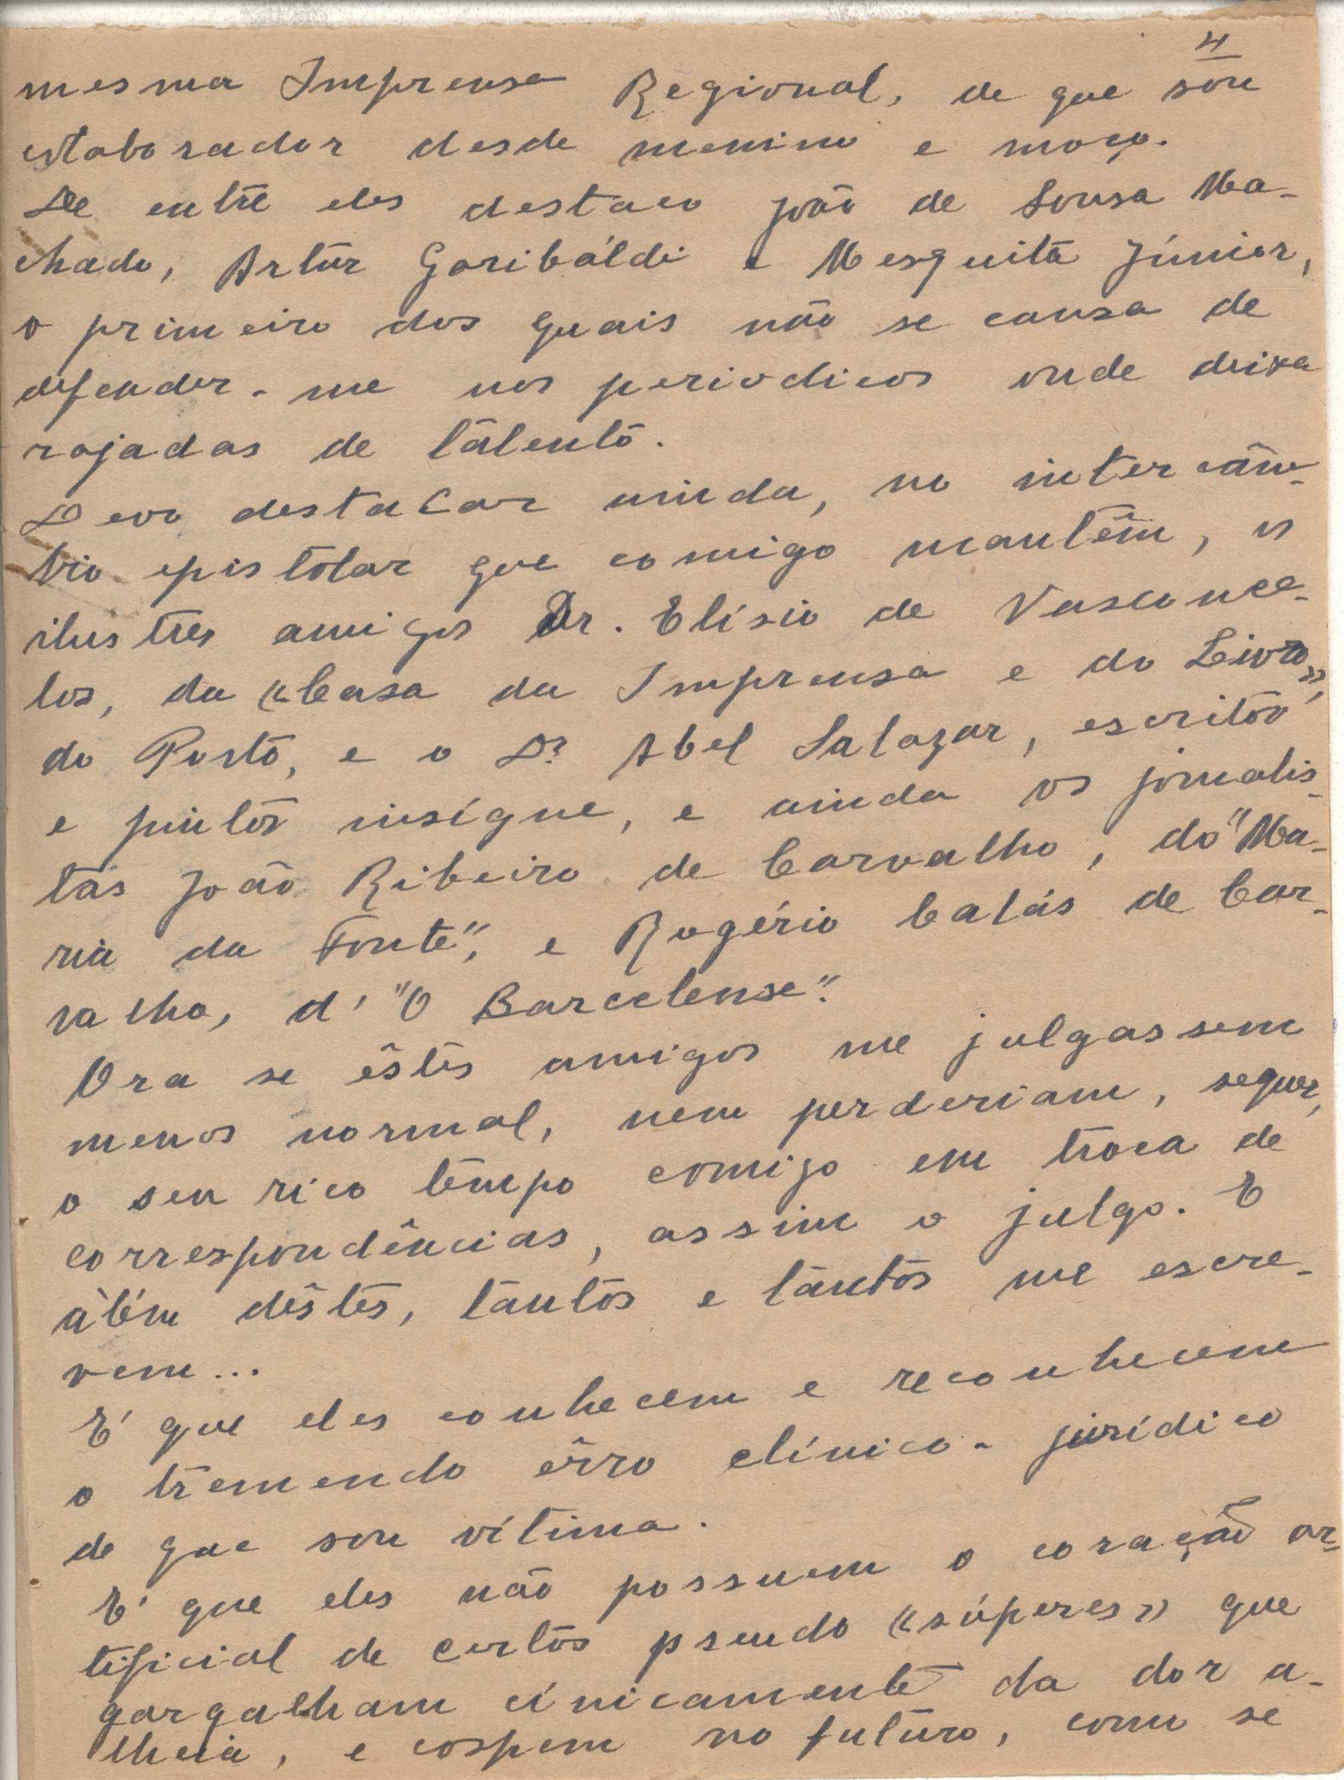 4
mesma Imprensa Regional, de que sou
colaborador desde menino e moço.
De entre eles destaco João de Sousa Ma-
chado, Artur Garibáldi e Mesquita Júnior,
o primeiro dos quais não se cansa de
defender-me nos periodicos onde deixa
rajadas de talento.
Devo destacar ainda, no intercâm-
bio epistolar que comigo mantêm, os
ilustres amigos Dr. Elísio de Vasconce-
los, da «Casa da Imprensa e do Livro»,
do Porto, e o Dr. Abel Salazar, escritor
e pintor insígne, e ainda os jornalis-
tas João Ribeiro de Carvalho, do "Ma-
ria da Fonte", e Rogério Calás de Car-
valho, d' "O Barcelense".
Ora se êstes amigos me julgassem
menos normal, nem perderiam, sequer,
o seu rico tempo comigo em troca de
correspondências, assim o julgo. E
àlém dêstes, tantos e tantos me escre-
vem...
E' que eles conhecem e reconhecem
o tremendo êrro clínico-jurídico
de que sou vítima.
E' que eles não possuem o coração ar-
tificial de certos pseudo «súperes» que
gargalham cínicamente da dor a-
lheia, e cospem no futuro, com se